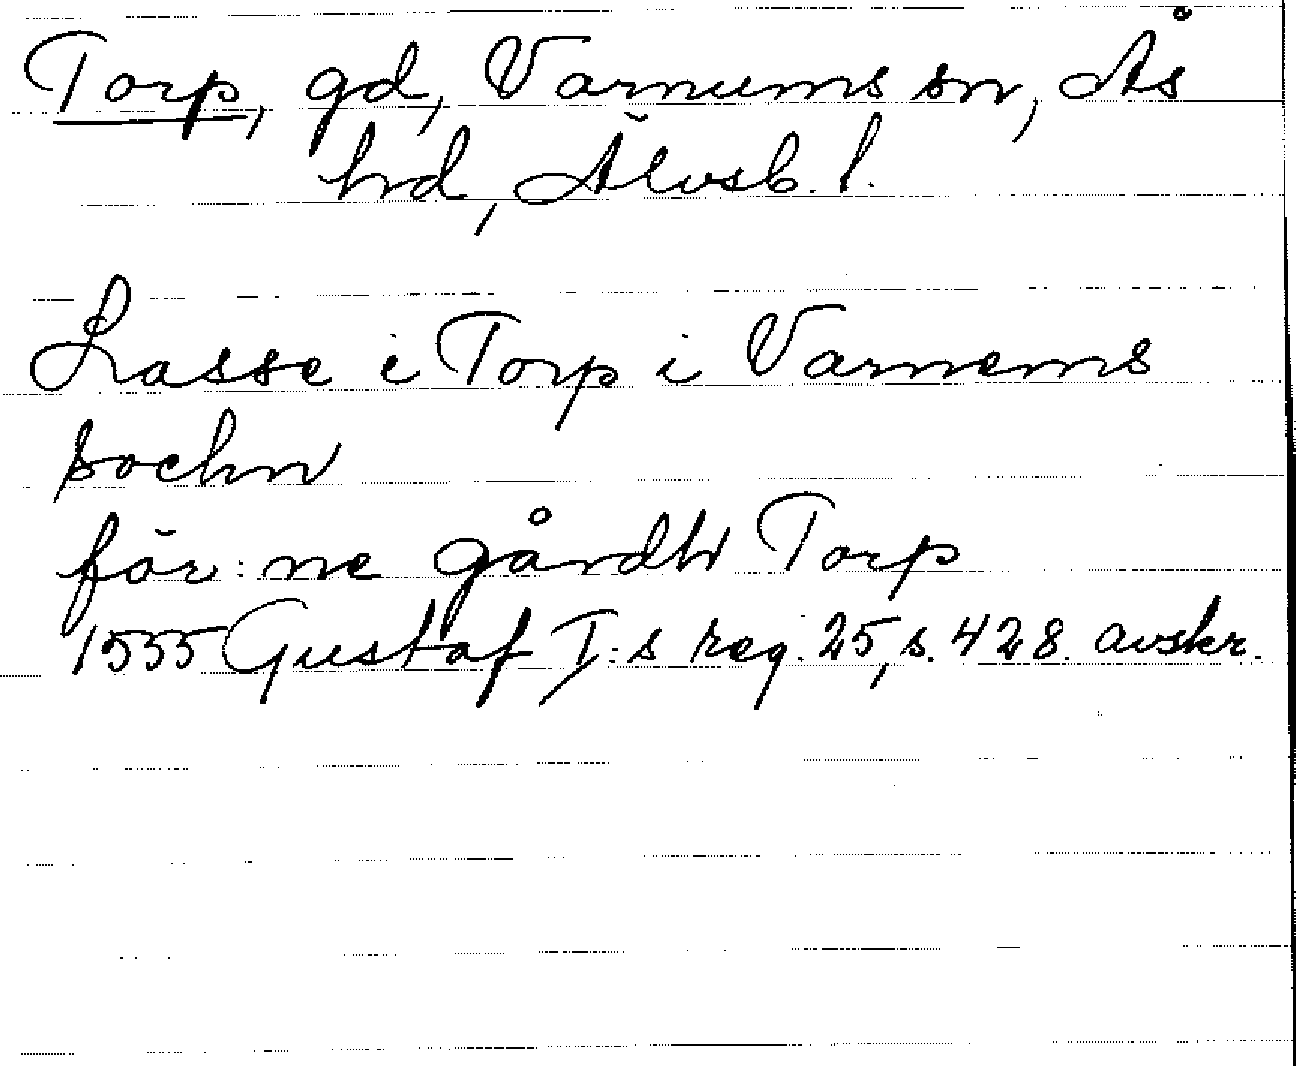 Torp, gd, Varnums sn, Ås
hd, Älvsb. l.
Lasse i Torp i Varnems
sochn
för:ne gårdh Torp
1555 Gustaf I:s reg. 25, s. 428. avskr.